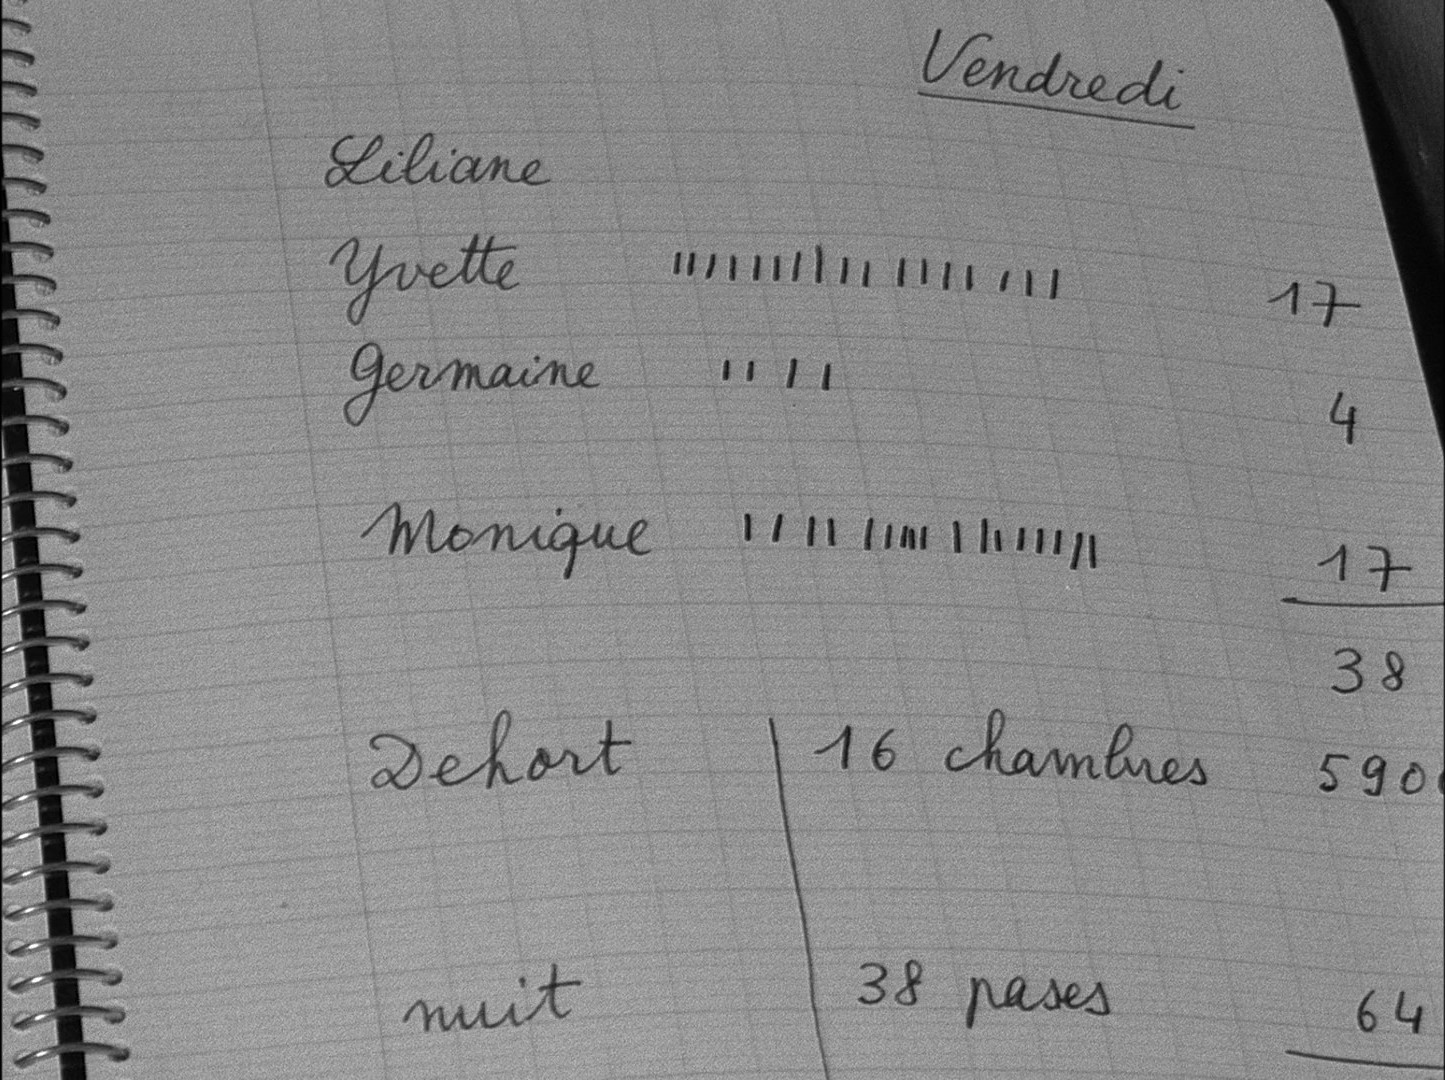 Vendredi
Liliane
Yvette 17
Germaine 4
Monique 17
38
Dehort 16 chambres 590
nuit 38 pases 64